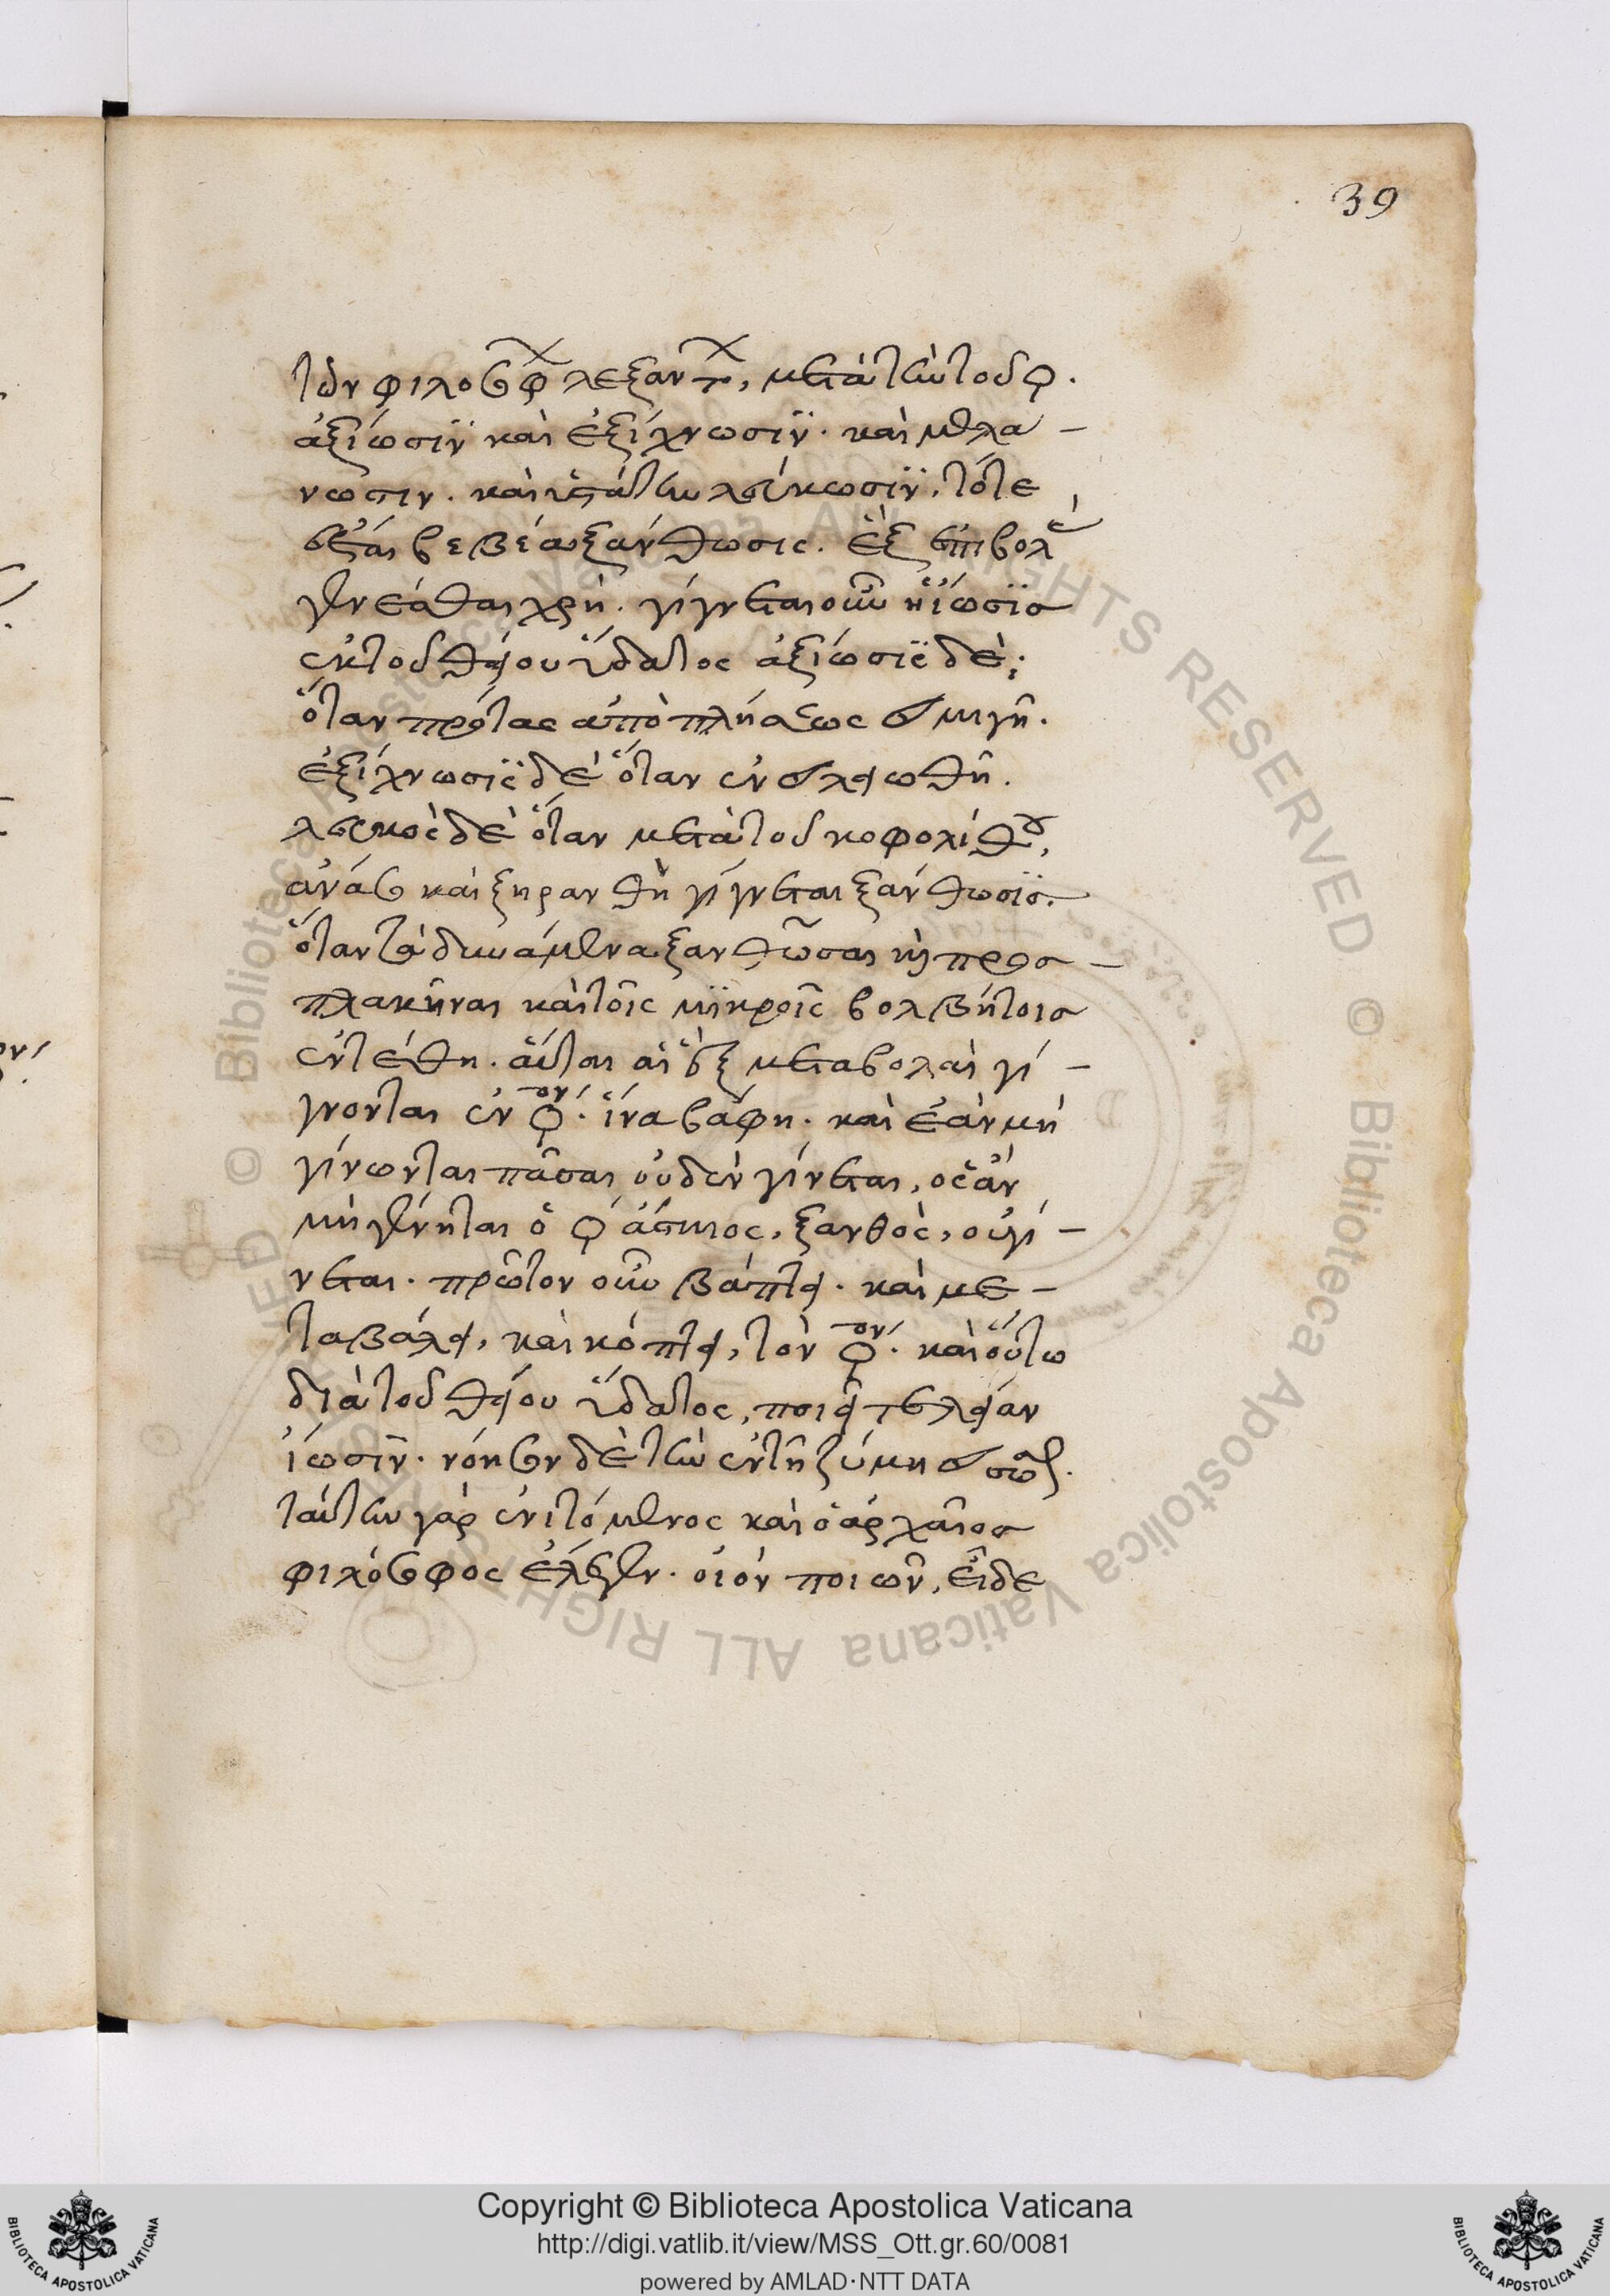 39
τῶν φιλοσόφ λεξάντ, μετὰ τὴν τοῦ ϙ.
ἀξίωσϊν καὶ ἐξίχνωσϊν. καὶ μελα-
νωσιν. καὶ μετάτην λεύκωσϊν, τότε
ἔσται βεβέα ξάνθωσις. ἓξ ἐπιβολ
γενέσθαι χρή. γίγνεται οὖν ἡ ἴωσϊσ
ἐκ τοῦ θείου ὕδατος ἀξίωσϊς δέ;
ὅταν πρότας ἀπὸ πλήσεως συμιγῆ.
ἐξίχνωσϊς δὲ ὅταν ἐν συλειωθῆ.
λευκὸς δὲ ὅταν μετὰ τοῦ κοφολίθου,
ἀνάσ καὶ ξηρανθῆ γίγνεται ξάνθωσϊσ.
ὅταν τὰ δυνάμενα ξανθῶσαι κ προσ-
πλακῆναι καὶ τοῖς μϊκροῖς βολβήτοισ
ἐντέθη. αὗται αἱ ἓξ μεταβολαὶ γί-
γνονται ἐν ϙον. ἵνα βάφη. καὶ ἐὰν μὴ
γίνωνται πᾶσαι οὐδὲν γίνεται, ος ἂν
μὴ γένηται ὁ ϙ ἄσκιος, ξανθὸς, οὐ γί-
νεται. πρῶτον οὖν βάπτει. καὶ με-
ταβάλει, καὶ κόπτει, τὸν ϙον. καὶ οὕτω
διὰ τοῦ θείου ὕδατος, ποιεῖ τελείαν
ἴωσϊν. νόησον δὲ τὴν ἐν τῆ ζύμη σ σω.
ταύτην γὰρ ἐνιτόμενος καὶ ὁ ἀρχαῖοσ
φιλόσοφος ἔλεγεν. οἷόν ποιων, εἶδε
Copyright © Biblioteca Apostolica Vaticana
http://digi.vatlib.it/view/MSS_Ott.gr.60/0081
powered by AMLAD·NTT DATA
BIBLIOTECA APOSTOLICA VATICANA
BIBLIOTECA APOSTOLICA VATICANA
© Biblioteca Apostolica Vaticana ALL RIGHTS RESERVED © Biblioteca Apostolica Vaticana ALL RIGHTS RESERVED